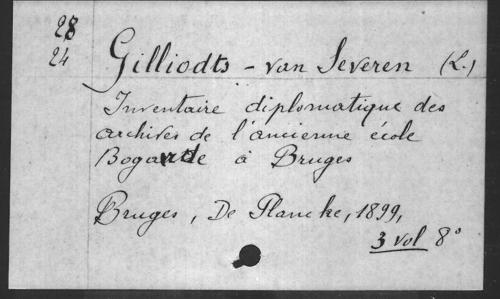 28
24
Gilliodts - van Severen (L.)
Inventaire diplomatique des
archives de l'ancienne école
Bogarde à Bruges
Bruges, De Plancke, 1899,
3 vol 8°